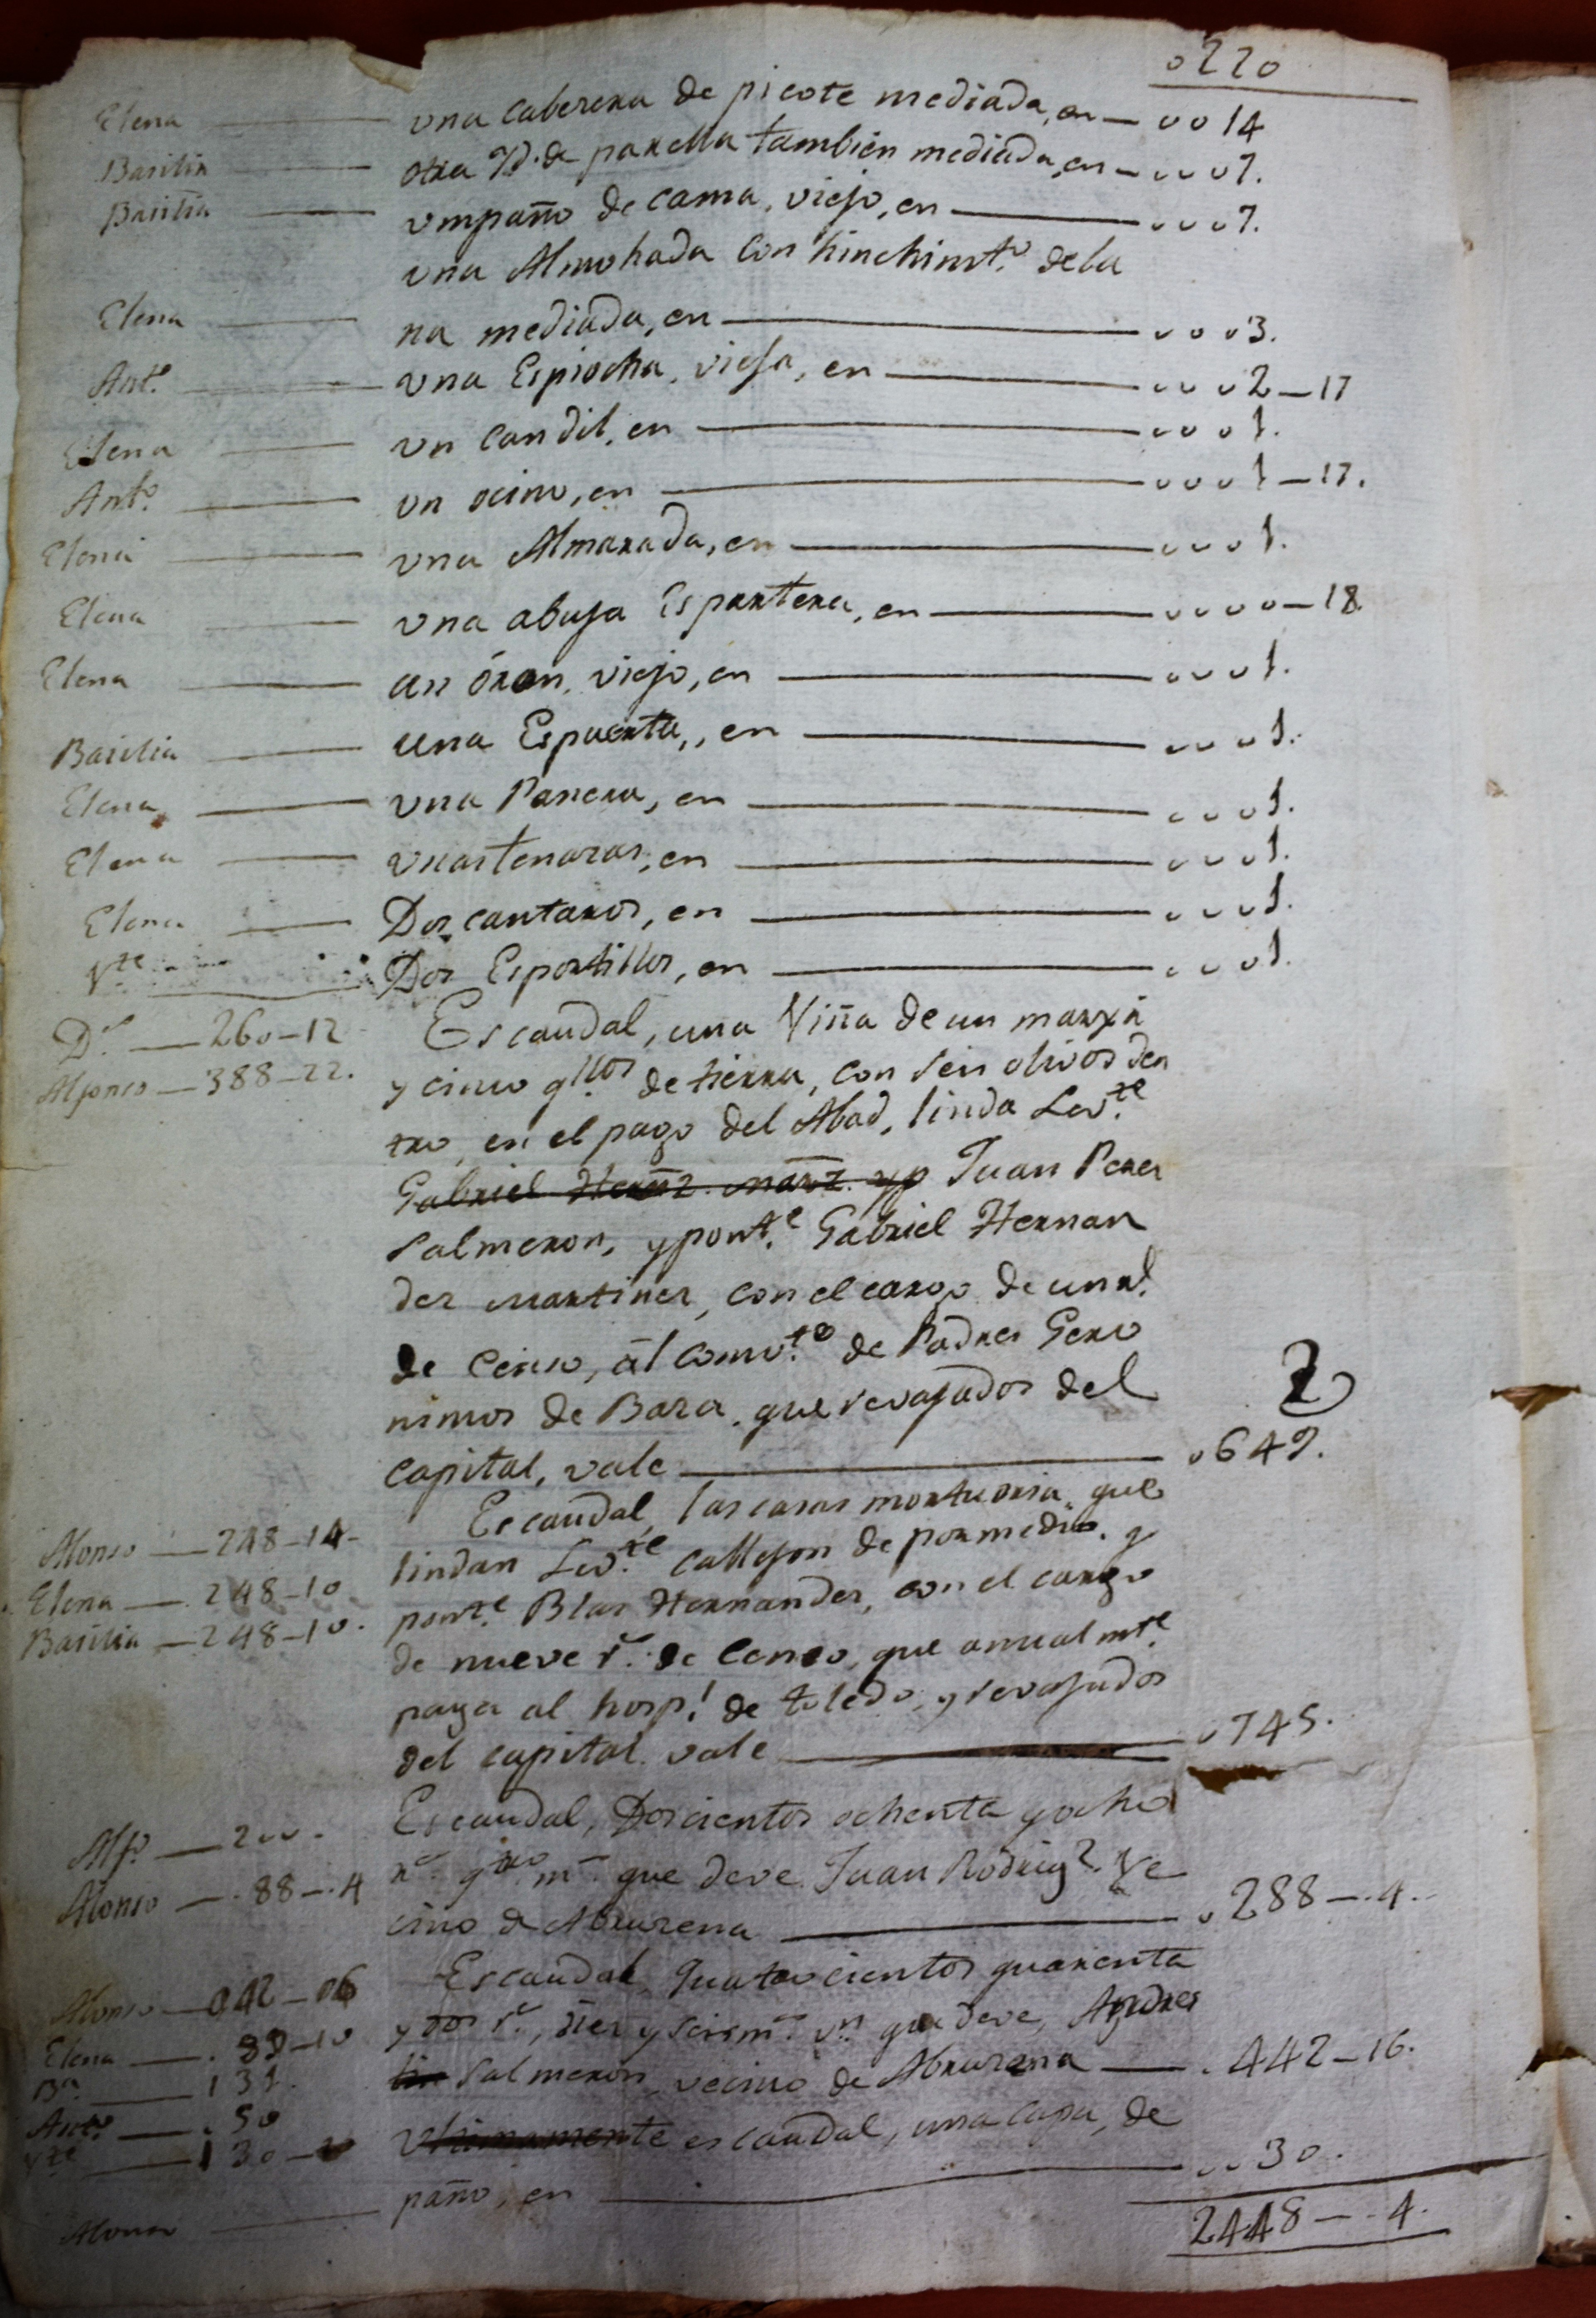 0220
Elena — una cabezera de picote mediada, en — 0014
Basilia — otra Yd. de parella tambien mediada, en — 0007.
Basilia — un paño de cama, viejo, en — 0007.
una Almohada con hinchimto. de la
Elena — na mediada, en — 0003.
Anto. — una Espiocha, vieja, en — 0002—17
Elena — un candil, en — 0001.
Anto. — un ocino, en — 0001—17.
Elena — una Almarada, en — 0001.
Elena — una abuja Espartera, en — 0000—18.
Elena — un óron, viejo, en — 0001.
Basilia — una Espuerta, en — 0001.
Elena — una Panera, en — 0001.
Elena — unas tenazas, en — 0001.
Elena — Dos cantaros, en — 0001.
Vte. — Dos Esportillos, en — 0001.
Dl. — 260—12 Es caudal, una Viña de un marxal
Alfonso — 388—22. y cinco qllos. de tierra, con seis olivos den
tro, en el pago del Abad, linda Levte.
Gabriel Hernz. Marz. yp Juan Perez
Salmeron, y ponte. Gabriel Hernan
dez Martinez, con el cargo de un rl.
de Censo, ál Convto. de Padres Gero
nimos de Baza, que revajados del
capital, vale — 0649.
2
Es caudal, las casas mortuoria, que
Alonso — 248—14— lindan Levte. callejon de por medio, y
Elena — 248—10 ponte. Blas Hernandez, con el cargo
Basilia — 248—10. de nueve rs. de Censo, que anualmte.
paga al hospl. de toledo, y revajados
del capital vale — 0745.
Es caudal, Doscientos ochenta y ocho
Alfo. — 200. rs. qtro ms. que deve Juan Rodrigz. Ve
Alonso — 88—4 cino de Abrucena — 0288—4.
Es caudal, quatrocientos quarenta
Alonso — 042—06 y dos rs., diez y seis ms. vn. que deve, Andres
Elena — 89—10
Ba. — 131. Salmeron, vecino de Abrucena — 442—16.
Anto. — 50 Ultimamente es caudal, una capa, de
Vte. — 130—
Alonso — paño, en — 0030.
2448—4.